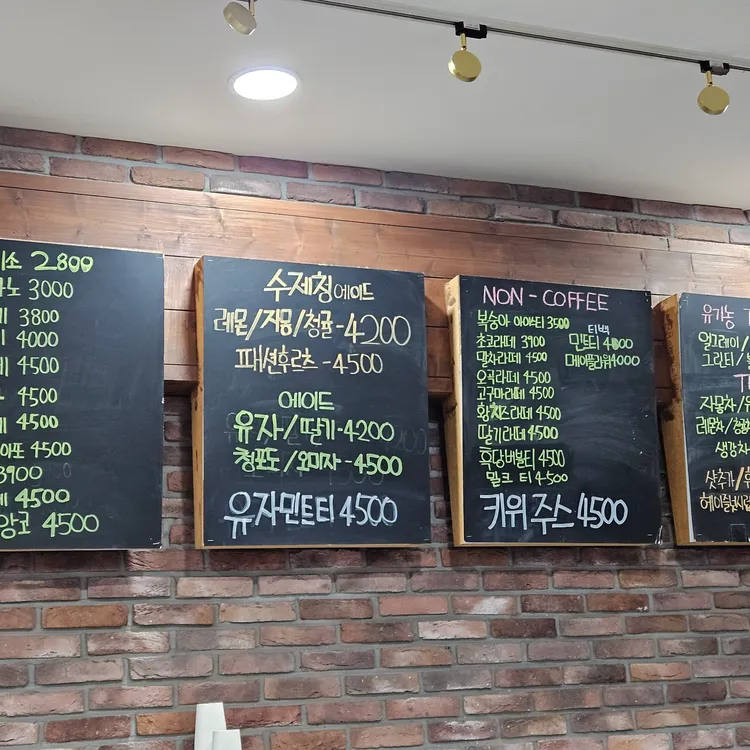 소 2.800
노 3000
3800
4000
4500
4500
4500
아포 4500
3900
4500
앙코 4500
수제청에이드
레몬/자몽/청귤-4200
패션후르츠-4500
에이드
유자/딸기-4200
청포도/오미자-4500
유자민트티 4500
NON-COFFEE
복숭아 아이스티 3500
초코라떼 3900
말차라떼 4500
오곡라떼 4500
고구마라떼 4500
딸기라떼 4500
흑당버블티 4500
밀크 티 4500
티백
민트티 4000
4000
키위주스 4500
유기농
얼그레이/
그린티/
자몽차/유
레몬차/청귤차
생강차
샷추가/